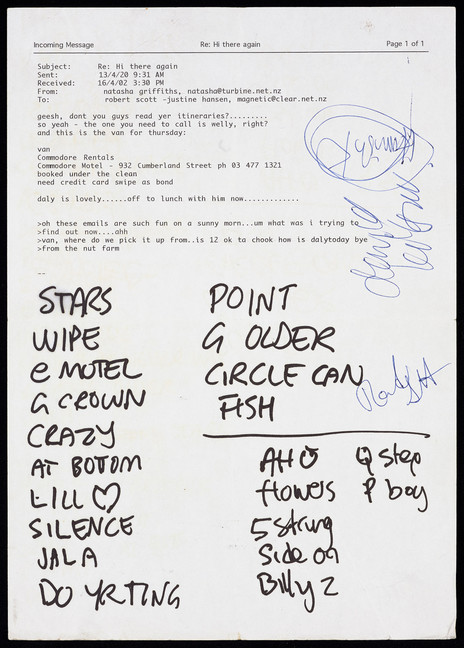 Incoming Message Re: Hi there again Page 1 of 1
Subject: Re: Hi there again
Sent: 13/4/20 9:31 AM
Received: 16/4/02 3:30 PM
From: natasha griffiths, natasha@turbine.net.nz
To: robert scott -justine hansen, magnetic@clear.net.nz
geesh, dont you guys read yer itineraries?.........
so yeah - the one you need to call is welly, right?
and this is the van for thursday:
van
Commodore Rentals
Commodore Motel - 932 Cumberland Street ph 03 477 1321
booked under the clean
need credit card swipe as bond
daly is lovely......off to lunch with him now.............
>oh these emails are such fun on a sunny morn...um what was i trying to
>find out now....ahh
>van, where do we pick it up from..is 12 ok ta chook how is dalytoday bye
>from the nut farm
--
STARS
WIPE
e MOTEL
G CROWN
CRAZY
AT BOTTOM
LILL ♡
SILENCE
JALA
DO YR TING
POINT
G OLDER
CIRCLE CAN
FISH
flowers
5 string
Side on
Billy 2
Q step
P boy